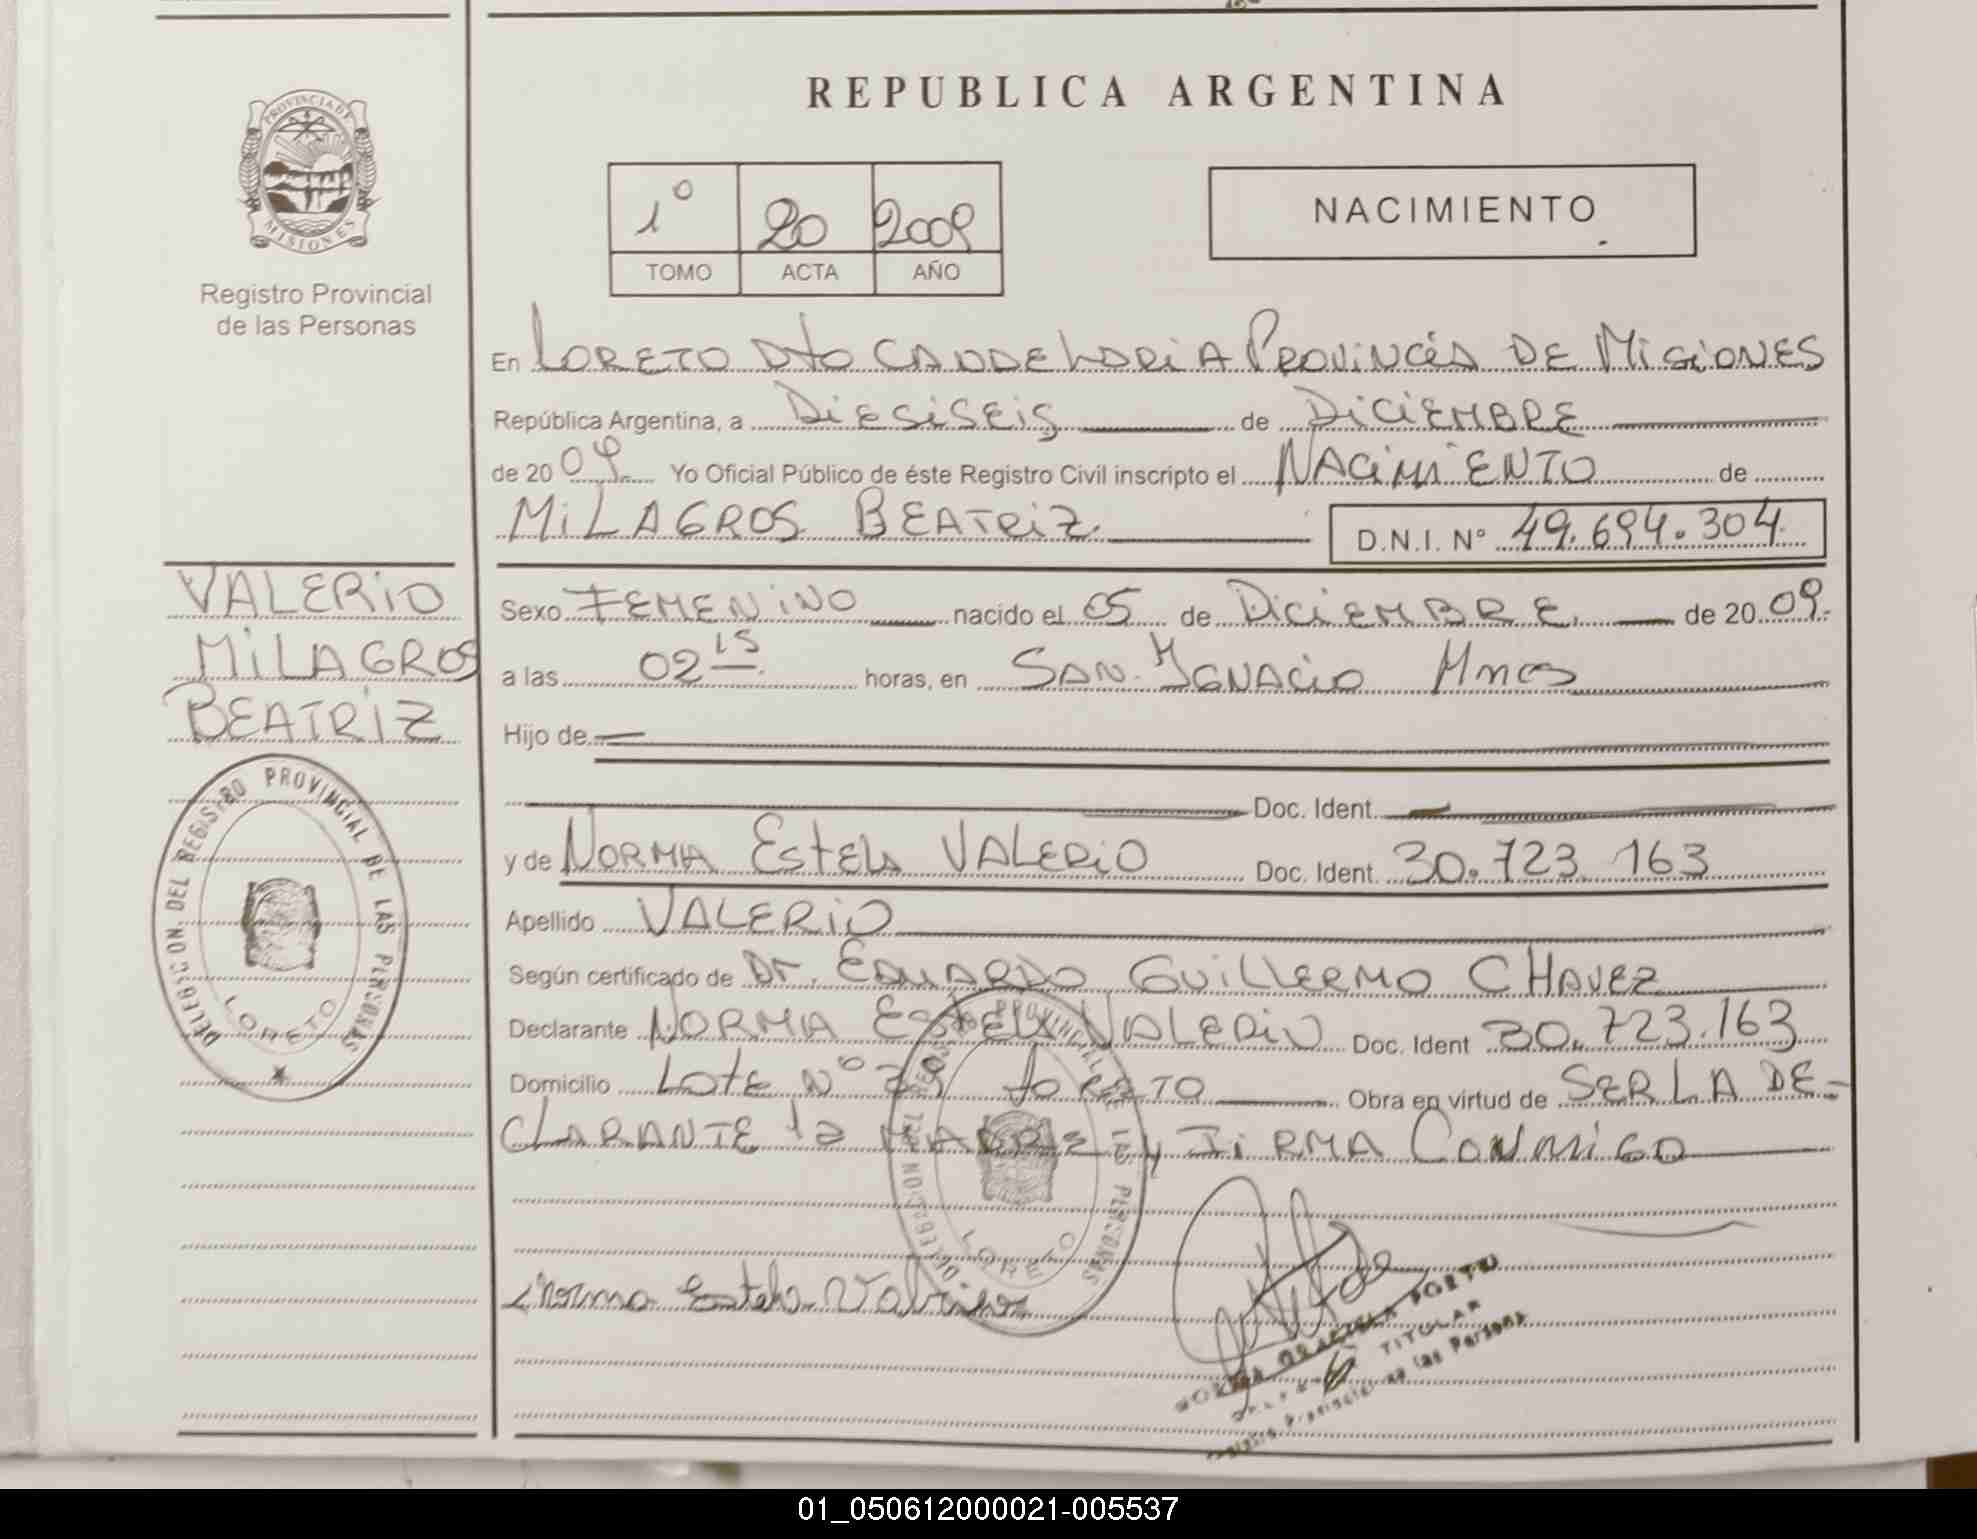 REPUBLICA ARGENTINA
PROVINCIA DE MISIONES
Registro Provincial
de las Personas
1º 20 2009
TOMO ACTA AÑO
NACIMIENTO
En LORETO Dto CANDELARIA PROVINCIA DE MISIONES
República Argentina, a DIESISEIS de DICIEMBRE
de 2009 Yo Oficial Público de éste Registro Civil inscripto el NACIMIENTO de
MILAGROS BEATRIZ D.N.I. Nº 49.694.304
VALERIO
MILAGROS
BEATRIZ
Sexo FEMENINO nacido el 05 de DICIEMBRE de 2009.
a las 02 15 horas, en SAN IGNACIO Mnes
Hijo de
Doc. Ident.
y de NORMA Estela VALERIO Doc. Ident. 30.723.163
Apellido VALERIO
Según certificado de Dr. EDUARDO GUILLERMO CHAVEZ
Declarante NORMA Estela VALERIO Doc. Ident 30.723.163
Domicilio Lote Nº LORETO Obra en virtud de SER LA DE-
CLARANTE la MADRE y FIRMA CONMIGO
DELEGACION DEL REGISTRO PROVINCIAL DE LAS PERSONAS
LORETO
DELEGACION DEL REGISTRO PROVINCIAL DE LAS PERSONAS
LORETO
Norma Estela Valerio
GRACIELA
TITULAR
Registro Provincial de las Personas
01_050612000021-005537